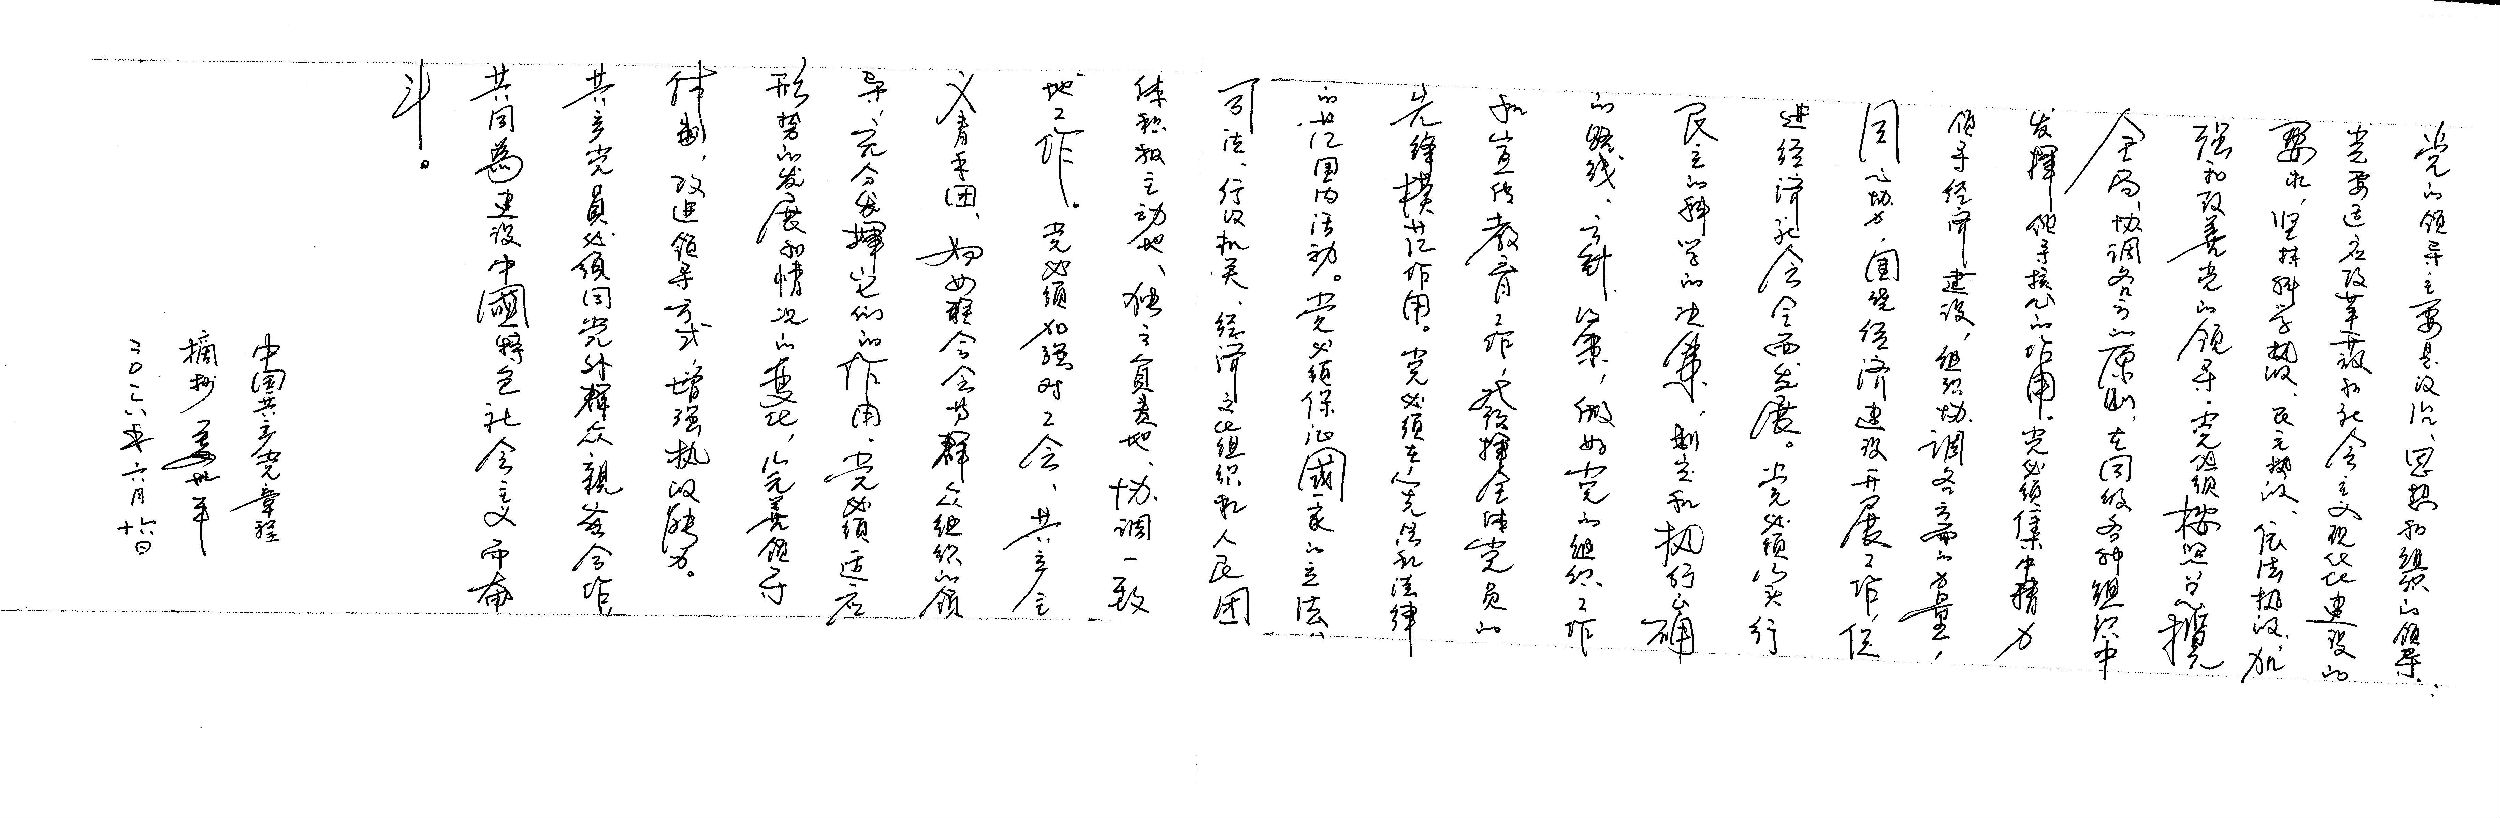 党的领导主要是政治、思想和组织的领导.
党要适应改革开放和社会主义现代化建设的
要求,坚持科学执政、民主执政、依法执政,加
强和改善党的领导.党必须按照总揽
全局、协调各方的原则,在同级各种组织中
发挥领导核心的作用。党必须集中精力
领导经济建设,组织协调各方面的力量,
同心协力,围绕经济建设开展工作,促
进经济社会全面发展。党必须实行
民主的科学的决策,制定和执行正确
的路线、方针、政策,做好党的组织工作
和宣传教育工作,发挥全体党员的
先锋模范作用。党必须在宪法和法律
的范围内活动。党必须保证國家的立法、
司法、行政机关、经济文化组织和人民团
体积极主动地、独立负责地、协调一致
地工作。党必须加强对工会、共产主
义青年团、妇女联合会等群众组织的领
导,充分发挥它们的作用.党必须适应
形势的发展和情况的变化,完善领导
体制,改进领导方式,增强执政能力。
共产党员必须同党外群众親密合作,
共同為建设中國特色社会主义而奋
斗。
中国共产党章程
摘抄
二〇一六年六月十六日